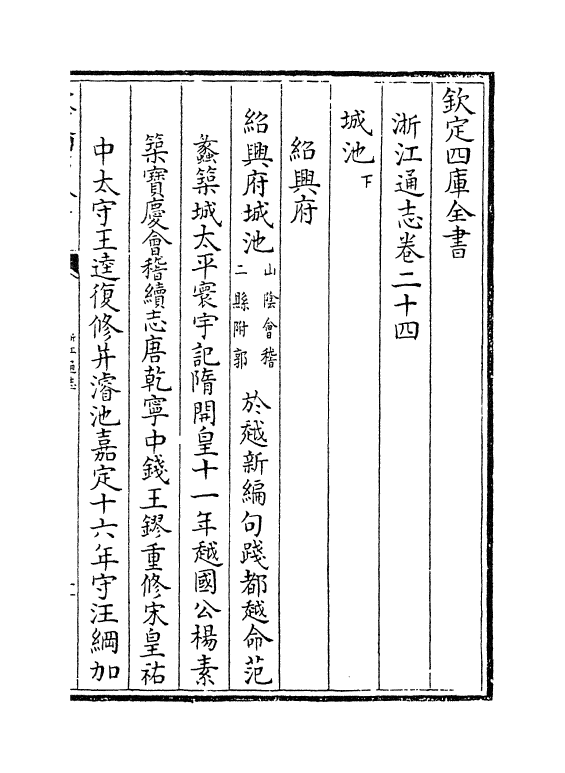 欽定四庫全書
浙江通志卷二十四
城池下
紹興府
紹興府城池山陰會稽二縣附郭於越新編句踐都越命范
蠡築城太平寰宇記隋開皇十一年越國公楊素
築寶慶會稽續志唐乾寧中錢王鏐重修宋皇祐
中太守王逵復修并濬池嘉定十六年守汪綱加
浙江通志